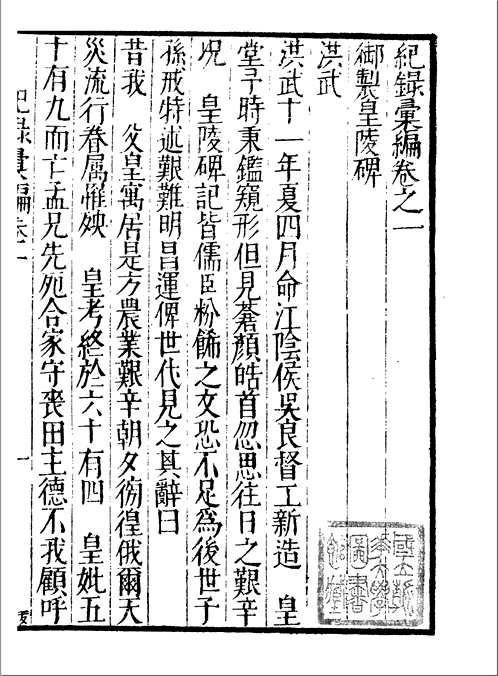 紀錄彙編卷之一
御製皇陵碑
洪武
洪武十一年夏四月命江陰侯吳良督工新造 皇
堂予時秉鑑窺形但見蒼顏皓首忽思往日之艱辛
況 皇陵碑記皆儒臣粉飾之文恐不足為後世子
孫戒特述艱難明昌運俾世代見之其辭曰
昔我 父皇寓居是方農業艱辛朝夕徬徨俄爾天
災流行眷属罹殃 皇考終於六十有四 皇妣五
十有九而亡孟兄先死合家守喪田主德不我顧呼
紀錄彙編卷一
一
國立北
平大學
圖書